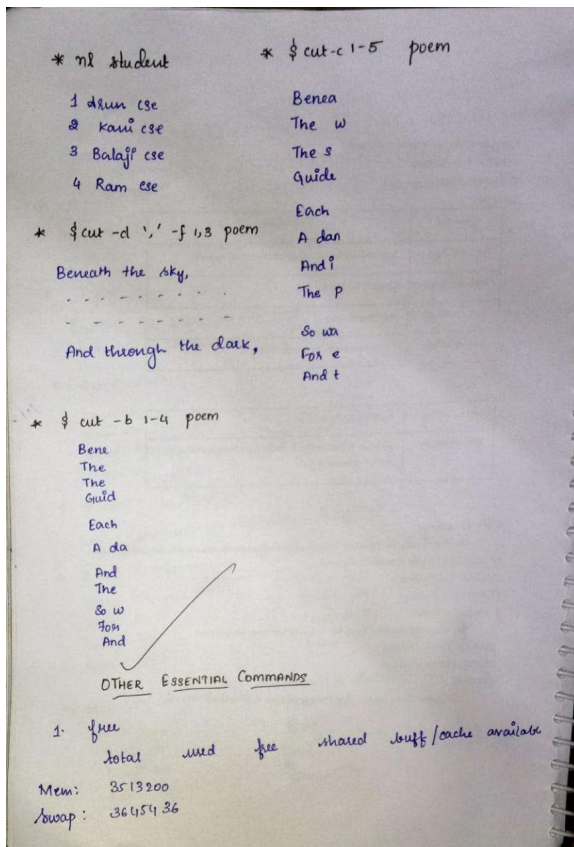 * nl student
1 drun cse
2 kani cse
3 Balaji cse
4 Ram cse
* $ cut -d ',' -f 1,3 poem
Beneath the sky,
- - - - - - - -
- - - - - - - -
And through the dark,
* $ cut-c 1-5 poem
Benea
The w
The s
Guide
Each
A dan
And i
The p
So wa
For e
And t
* $ cut -b 1-4 poem
Bene
The
The
Guid
Each
A da
And
The
So w
For
And
OTHER ESSENTIAL COMMANDS
1. free
total used free shared buff/cache available
Mem: 3513200
Swap: 3645436